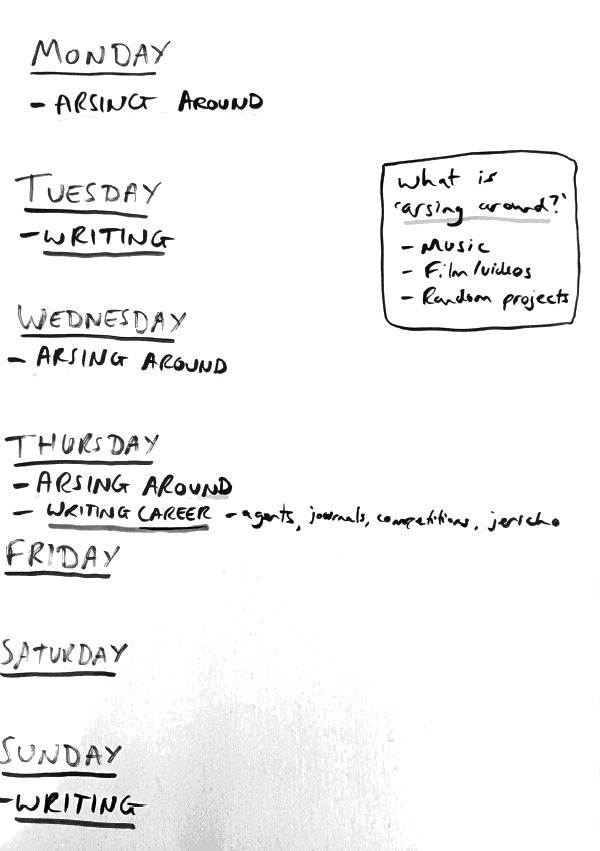 MONDAY
- ARSING AROUND
TUESDAY
- WRITING
What is
'arsing around?'
- Music
- Film/videos
- Random projects
WEDNESDAY
- ARSING AROUND
THURSDAY
- ARSING AROUND
- WRITING CAREER - agents, journals, competitions, jericho
FRIDAY
SATURDAY
SUNDAY
- WRITING